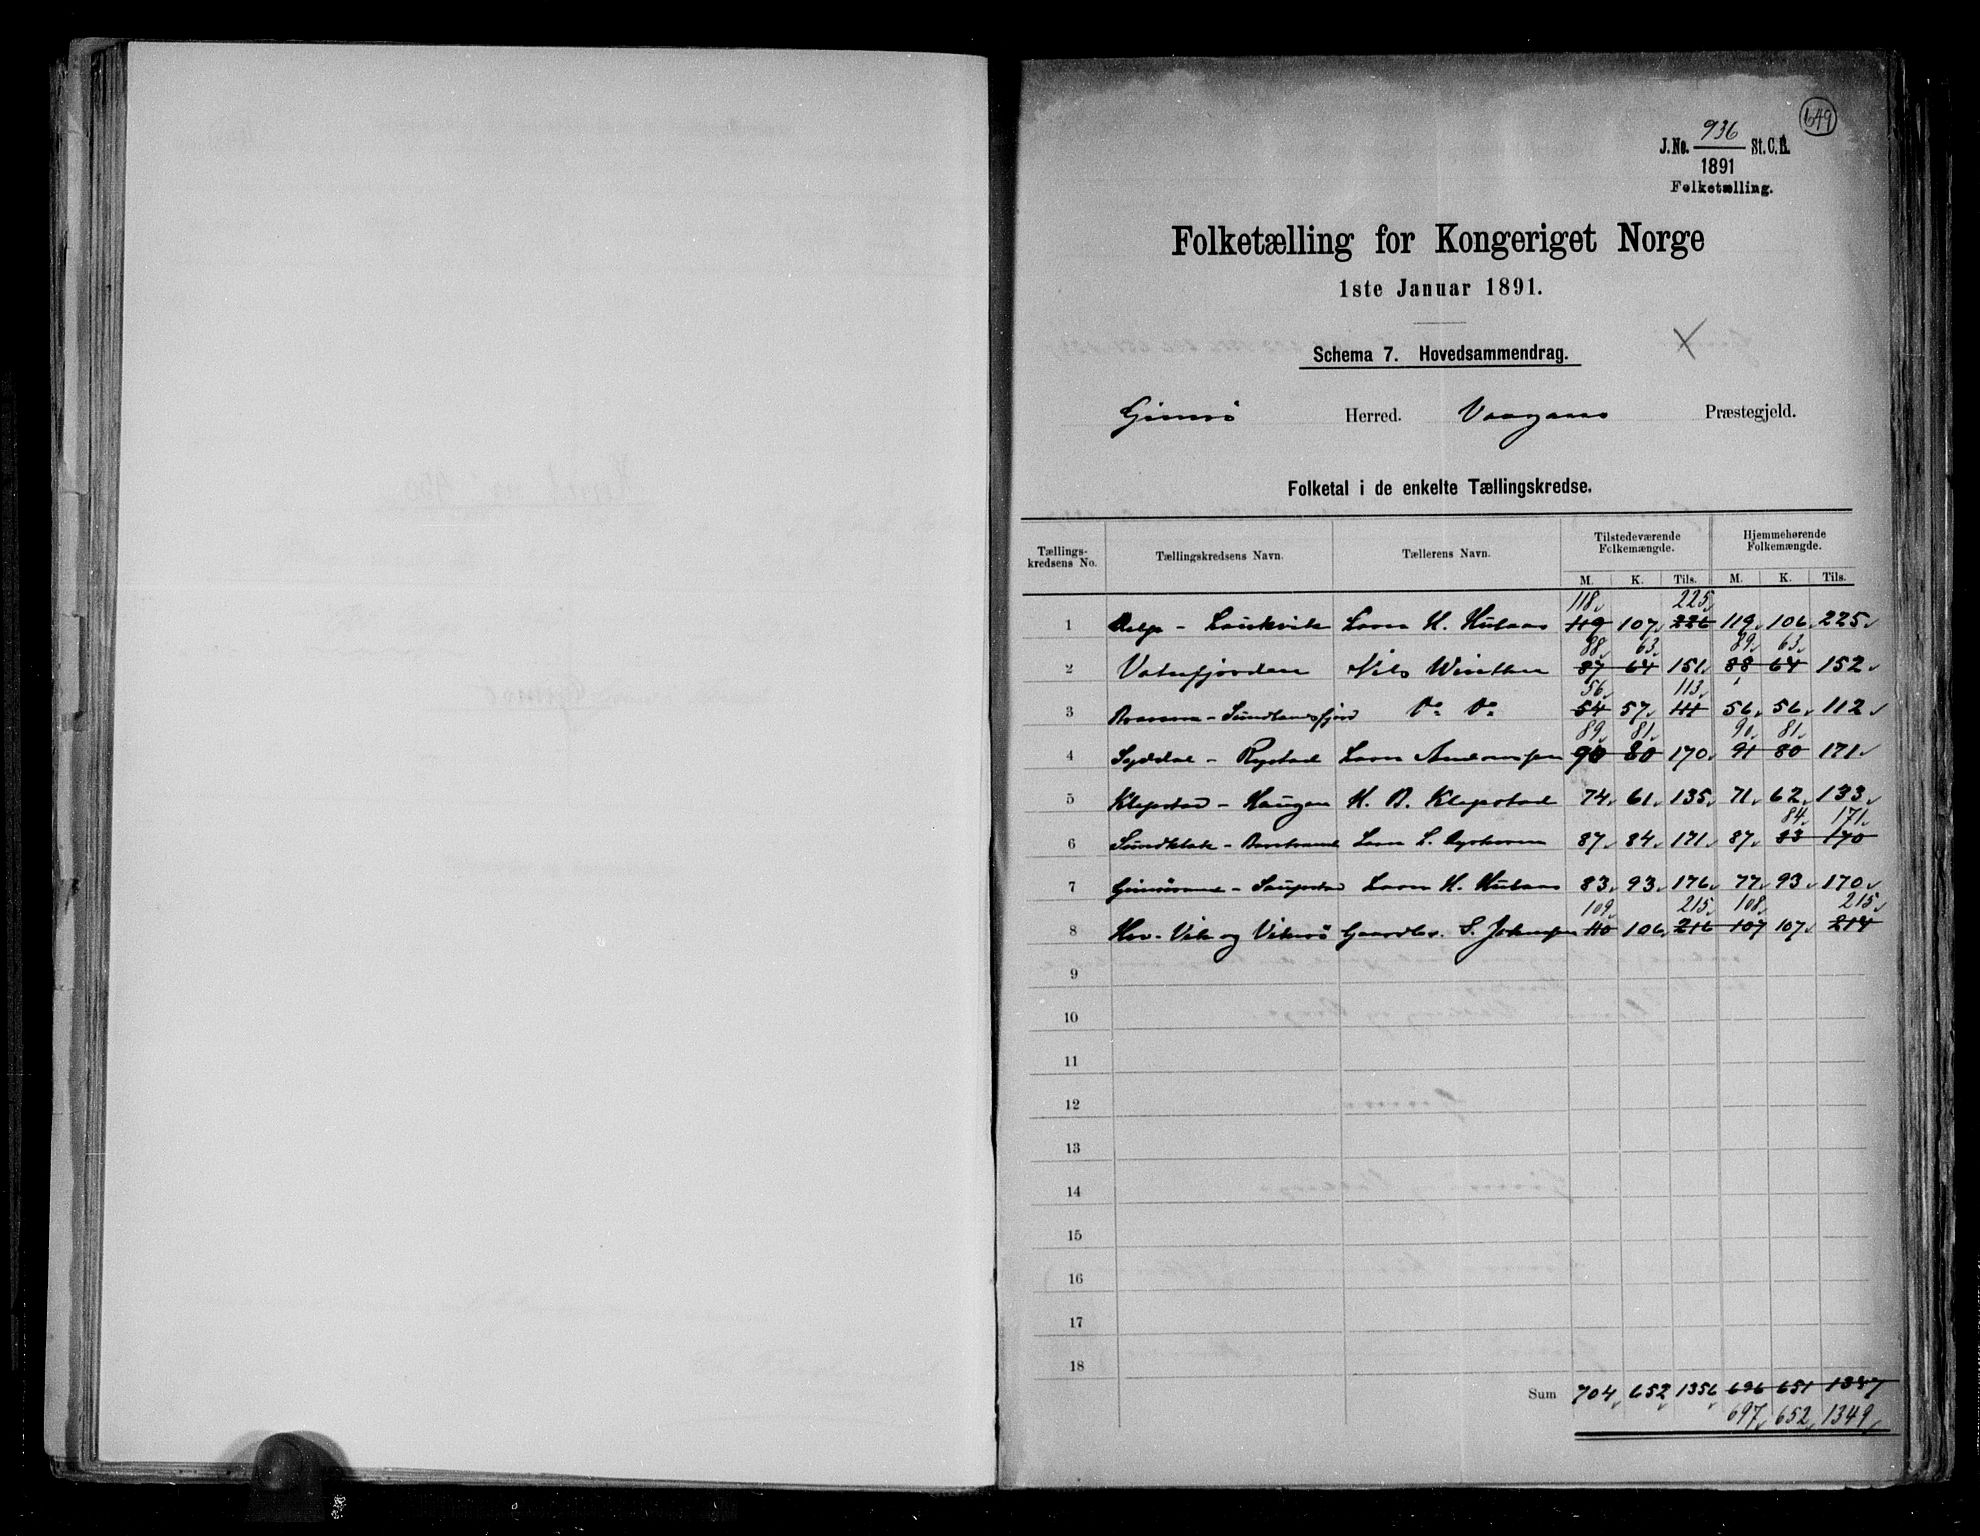 649
936
J. No. St. C. B.
1891
Folketælling.
Folketælling for Kongeriget Norge
1ste Januar 1891.
Schema 7. Hovedsammendrag.
Gimsø Herred. Vaagans Præstegjeld.
Folketal i de enkelte Tællingskredse.
Tællings-kredsens No. Tællingskredsens Navn. Tællerens Navn. Tilstedeværende Folkemængde. Hjemmehørende Folkemængde.
M. K. Tils. M. K. Tils.
118 225
1 Delp - Laukvik Lars H. Hulaas 119 107 226 119 106 225
88 63 89 63
2 Vatnfjorden Nils Winther 87 64 151 88 64 152
56 113
3 - Sundlandsfjord Do Do 54 57 111 56 56 112
89 81 90 81
4 Syddal - Rystad Lars 90 80 170 91 80 171
5 Klepstad - Haugen H. B. Klepstad 74 61 135 71 62 133
84 171
6 Sundklak - Lars L. 87 84 171 87 83 170
7 Gimsøsand - Saupstad Lars H. Hulaas 83 93 176 77 93 170
109 215 108 215
8 Hov - Vik og Vikerø Gaardbr. S. Johnsen 110 106 216 107 107 214
9
10
11
12
13
14
15
16
17
18
Sum 704 652 1356 696 651 1347
697 652 1349